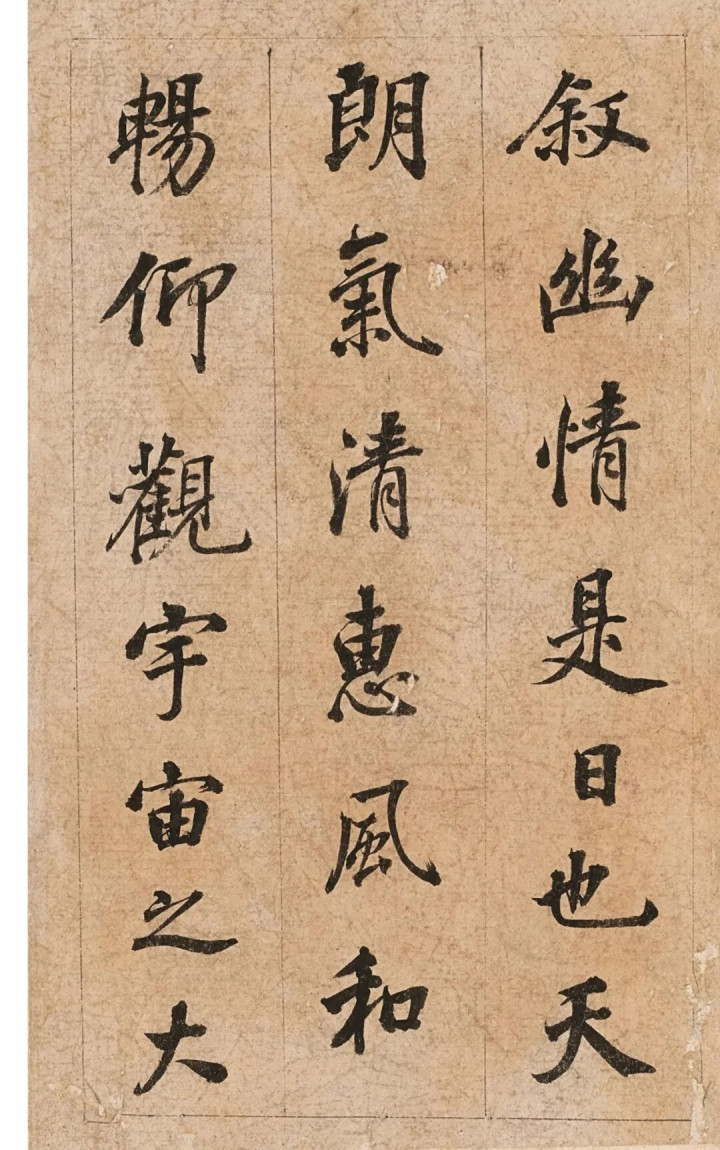 叙幽情是日也天
朗氣清惠風和
暢仰觀宇宙之大